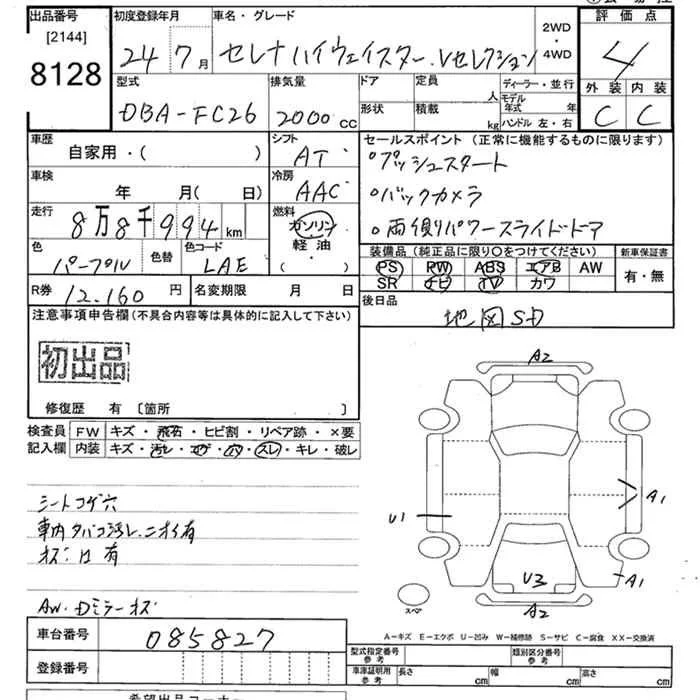 出品番号
[2144]
8128
初度登録年月
24年7月
車名・グレード
セレナハイウェイスター.Vセレクション
2WD
・
4WD
評価点
4
型式
DBA-FC26
排気量
2000cc
ドア
形状
定員 人
積載 kg
ディーラー・並行
モデル年式 年
ハンドル 左・右
外装 内装
C C
車歴
自家用・( )
シフト
AT
セールスポイント (正常に機能するものに限ります)
°プッシュスタート
°バックカメラ
°両側パワースライドドア
車検
年 月( 日)
冷房
AAC
走行
8万8千994km
燃料
ガソリン
軽油
( )
色
パープル
色替
色コード
LAE
装備品 (純正品に限り○をつけてください)
PS PW ABS エアB AW
SR ナビ TV カワ
新車保証書
有・無
R券 12,160円
名変期限 月 日
後日品
地図SD
注意事項申告欄(不具合内容等は具体的に記入して下さい)
初出品
修復歴 有 〔箇所 〕
検査員
記入欄
FW キズ・飛石・ヒビ割・リペア跡・×要
内装 キズ・汚レ・コゲ・穴・スレ・キレ・破レ
シートコゲ穴
車内タバコ汚レ.ニオイ有
AW.Dミラーキズ
A2
U1
A1
A1
U3
A2
スペア
A-キズ E-エクボ U-凹み W-補修跡 S-サビ C-腐食 XX-交換済
車台番号 085827
登録番号
型式指定番号
参考
類別区分番号
参考
車庫証明用
参考
長さ cm
幅 cm
高さ cm